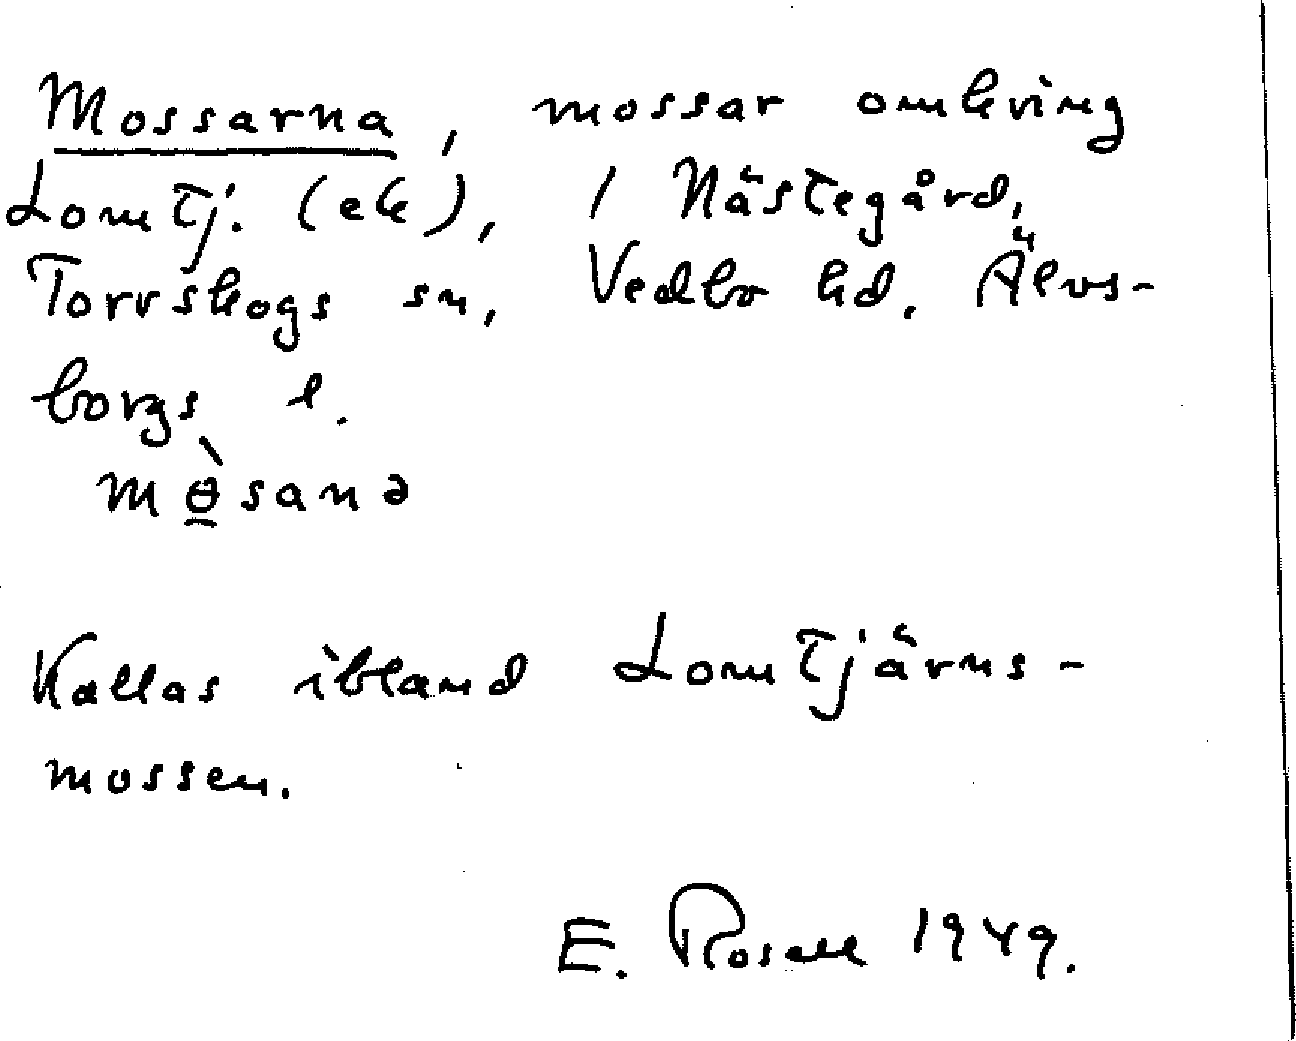 Mossarna, mossar omkring
Lomtj. (ek), 1 Nästegård,
Torrskogs sn, Vedbo hd. Älvs-
borgs l.
mɵ̠̀sanə
Kallas ibland Lomtjärns-
mossen.
E. Rosell 1949.